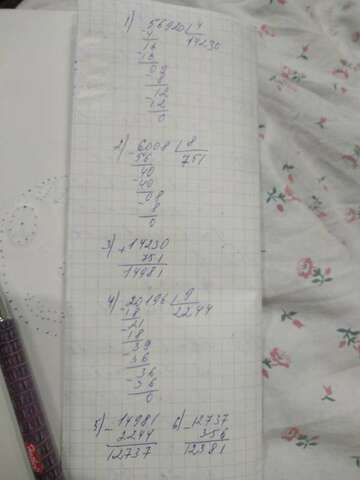 1) - 56920 | 4
4 | 14230
16
- 16
09
- 8
12
- 12
0
2) - 6008 | 8
56 | 751
- 40
40
- 08
8
0
3) + 14230
751
14981
4) - 20196 | 9
18 | 2244
- 21
18
- 39
36
- 36
36
0
5) - 14981 6) - 12737
2244 356
12737 12381